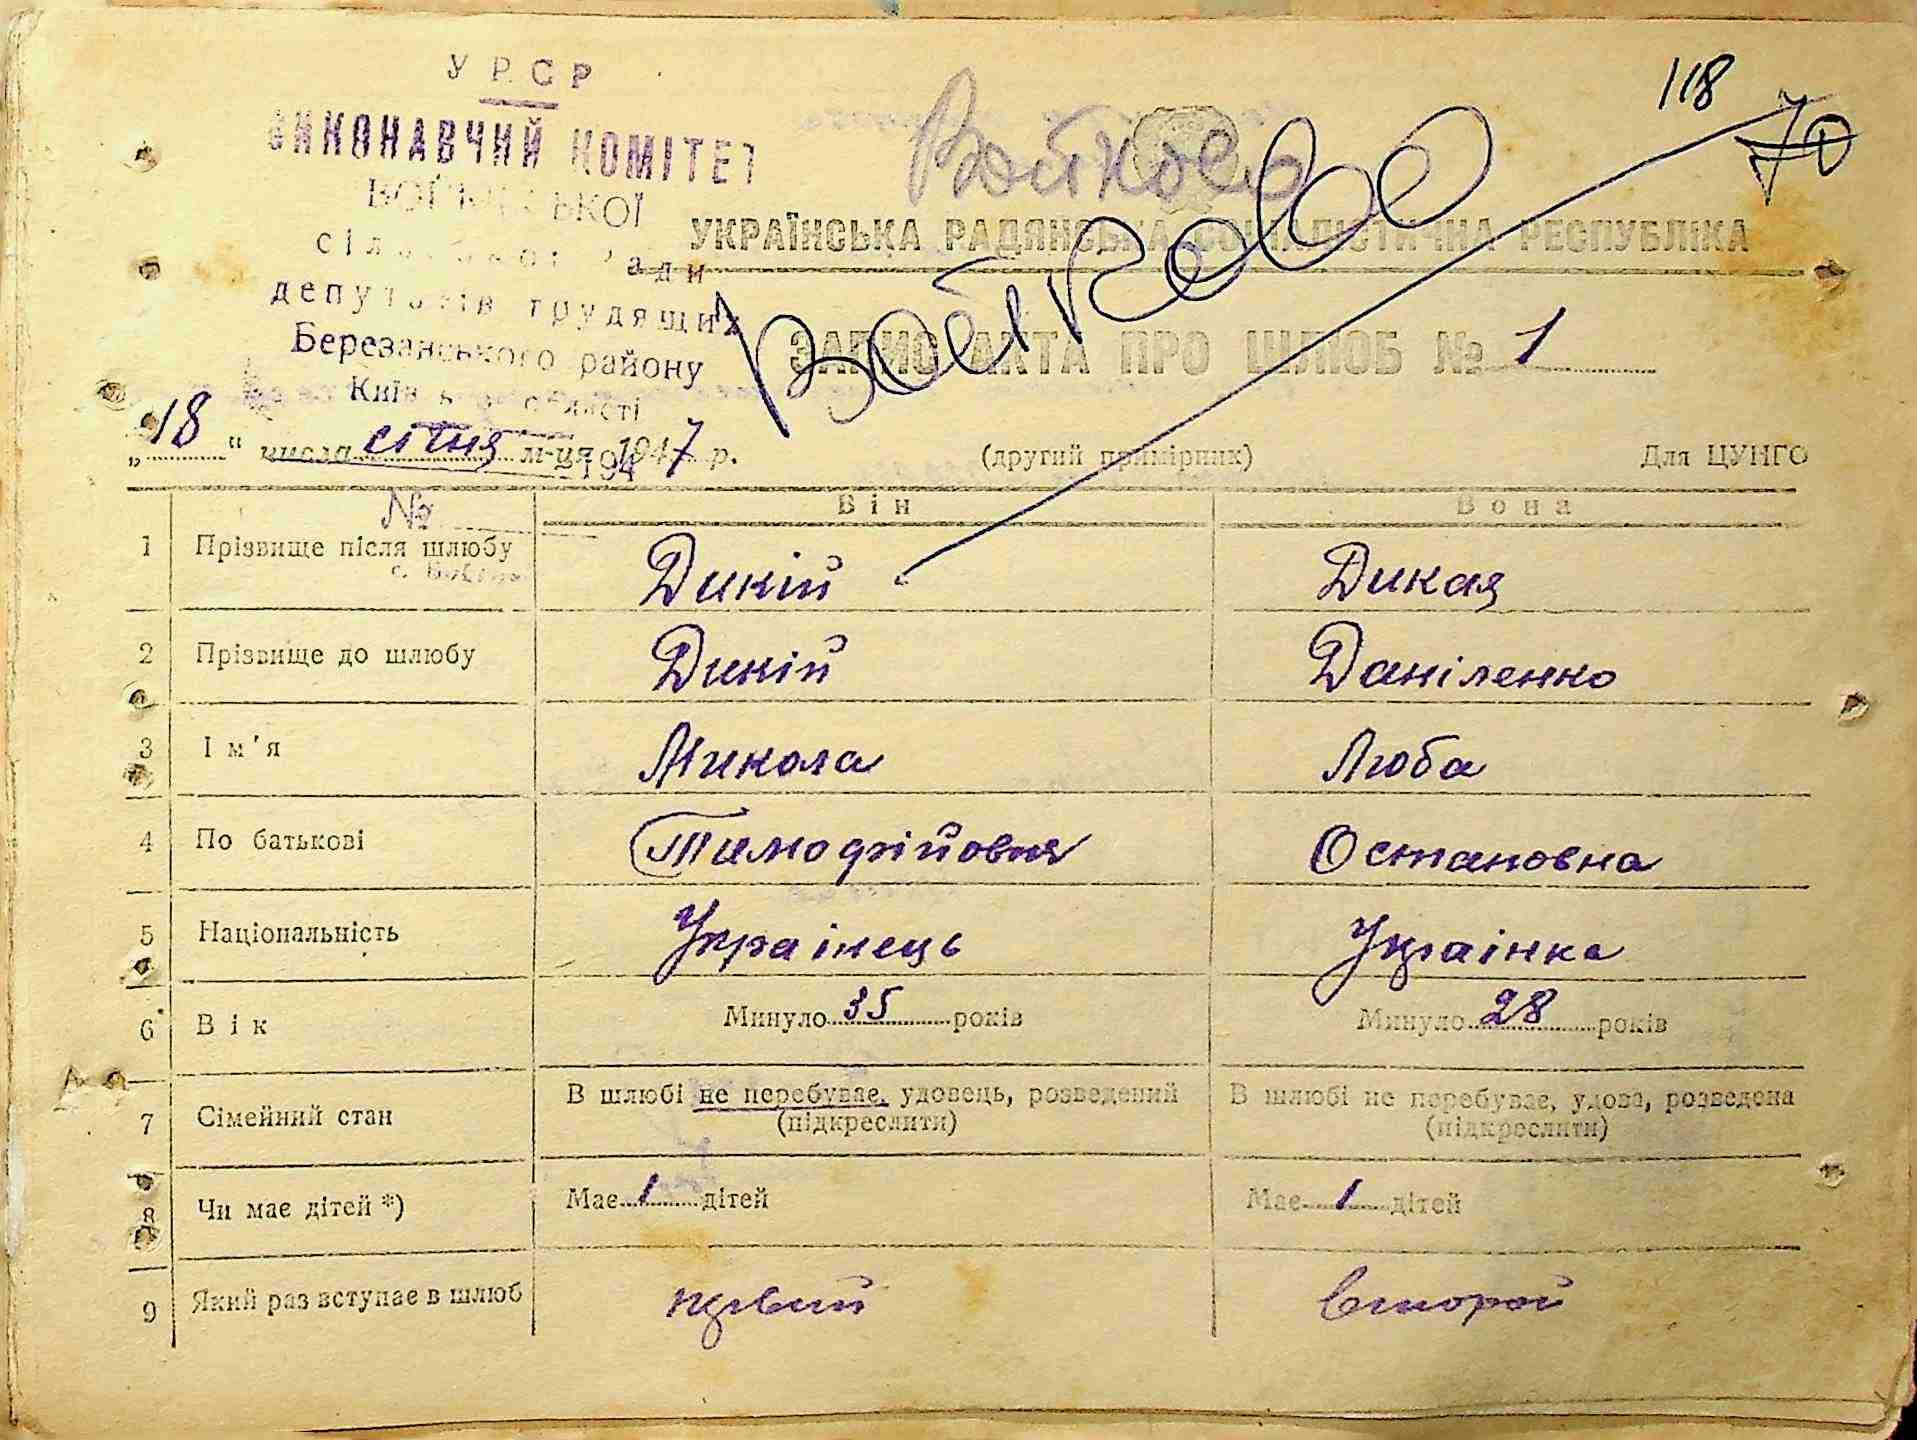 118
УРСР
ВИКОНАВЧИЙ КОМІТЕТ
Войкове
70
УКРАЇНСЬКА РАДЯНСЬКА СОЦІАЛІСТИЧНА РЕСПУБЛІКА
сільської ради
депутатів трудящих
Войкове
Березанського району
ЗАПИС АКТА ПРО ШЛЮБ № 1
Київської області
„18“ числа сітня м-ця 1947 р.
194
(другий примірник)
Для ЦУНГО
№
Він
Вона
1 Прізвище після шлюбу Дикій Дикая
2 Прізвище до шлюбу Дикій Даніленко
3 Ім'я Микола Люба
4 По батькові Тимофійовия Остановна
5 Національність Українець Українка
6 Вік Минуло 35 років Минуло 28 років
7 Сімейний стан В шлюбі не перебуває, удовець, розведений В шлюбі не перебуває, удова, розведена
(підкреслити) (підкреслити)
8 Чи має дітей *) Має 1 дітей Має 1 дітей
9 Який раз вступає в шлюб первий второй